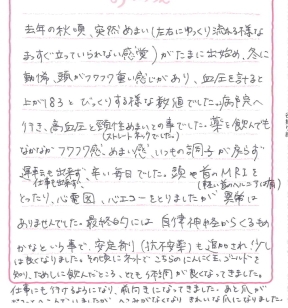 去年の秋頃、突然めまい(左右にゆっくり流れる様な
まっすぐ立っていられない感覚)がたまに出始め、冬に
動悸、頭がフワフワ重い感じがあり、血圧を計ると
上が183とびっくりする様な数値でした。病院へ
行き、高血圧と頸性めまいとの事でした。薬を飲んでも
(ストレートネックでした)
なかなかフワフワ感、めまい感、いつもの調子が戻らず
運転も出来ず、辛い毎日でした。頭や首のMRIを
仕事も出来ず、(軽い首のヘルニアは有)
とったり、心電図、心エコーをとりましたが異常は
ありませんでした。最終的には自律神経からくるもの
かなという事で、安定剤(抗不安薬)も追加され少し
は良くなりました。その頃にネットでこちらのにんにく玉ゴールドを
知り、ためしに飲んだところ、とても体調が良くなってきました。
仕事にも行けるようになり、前向きになってきました。あと爪が